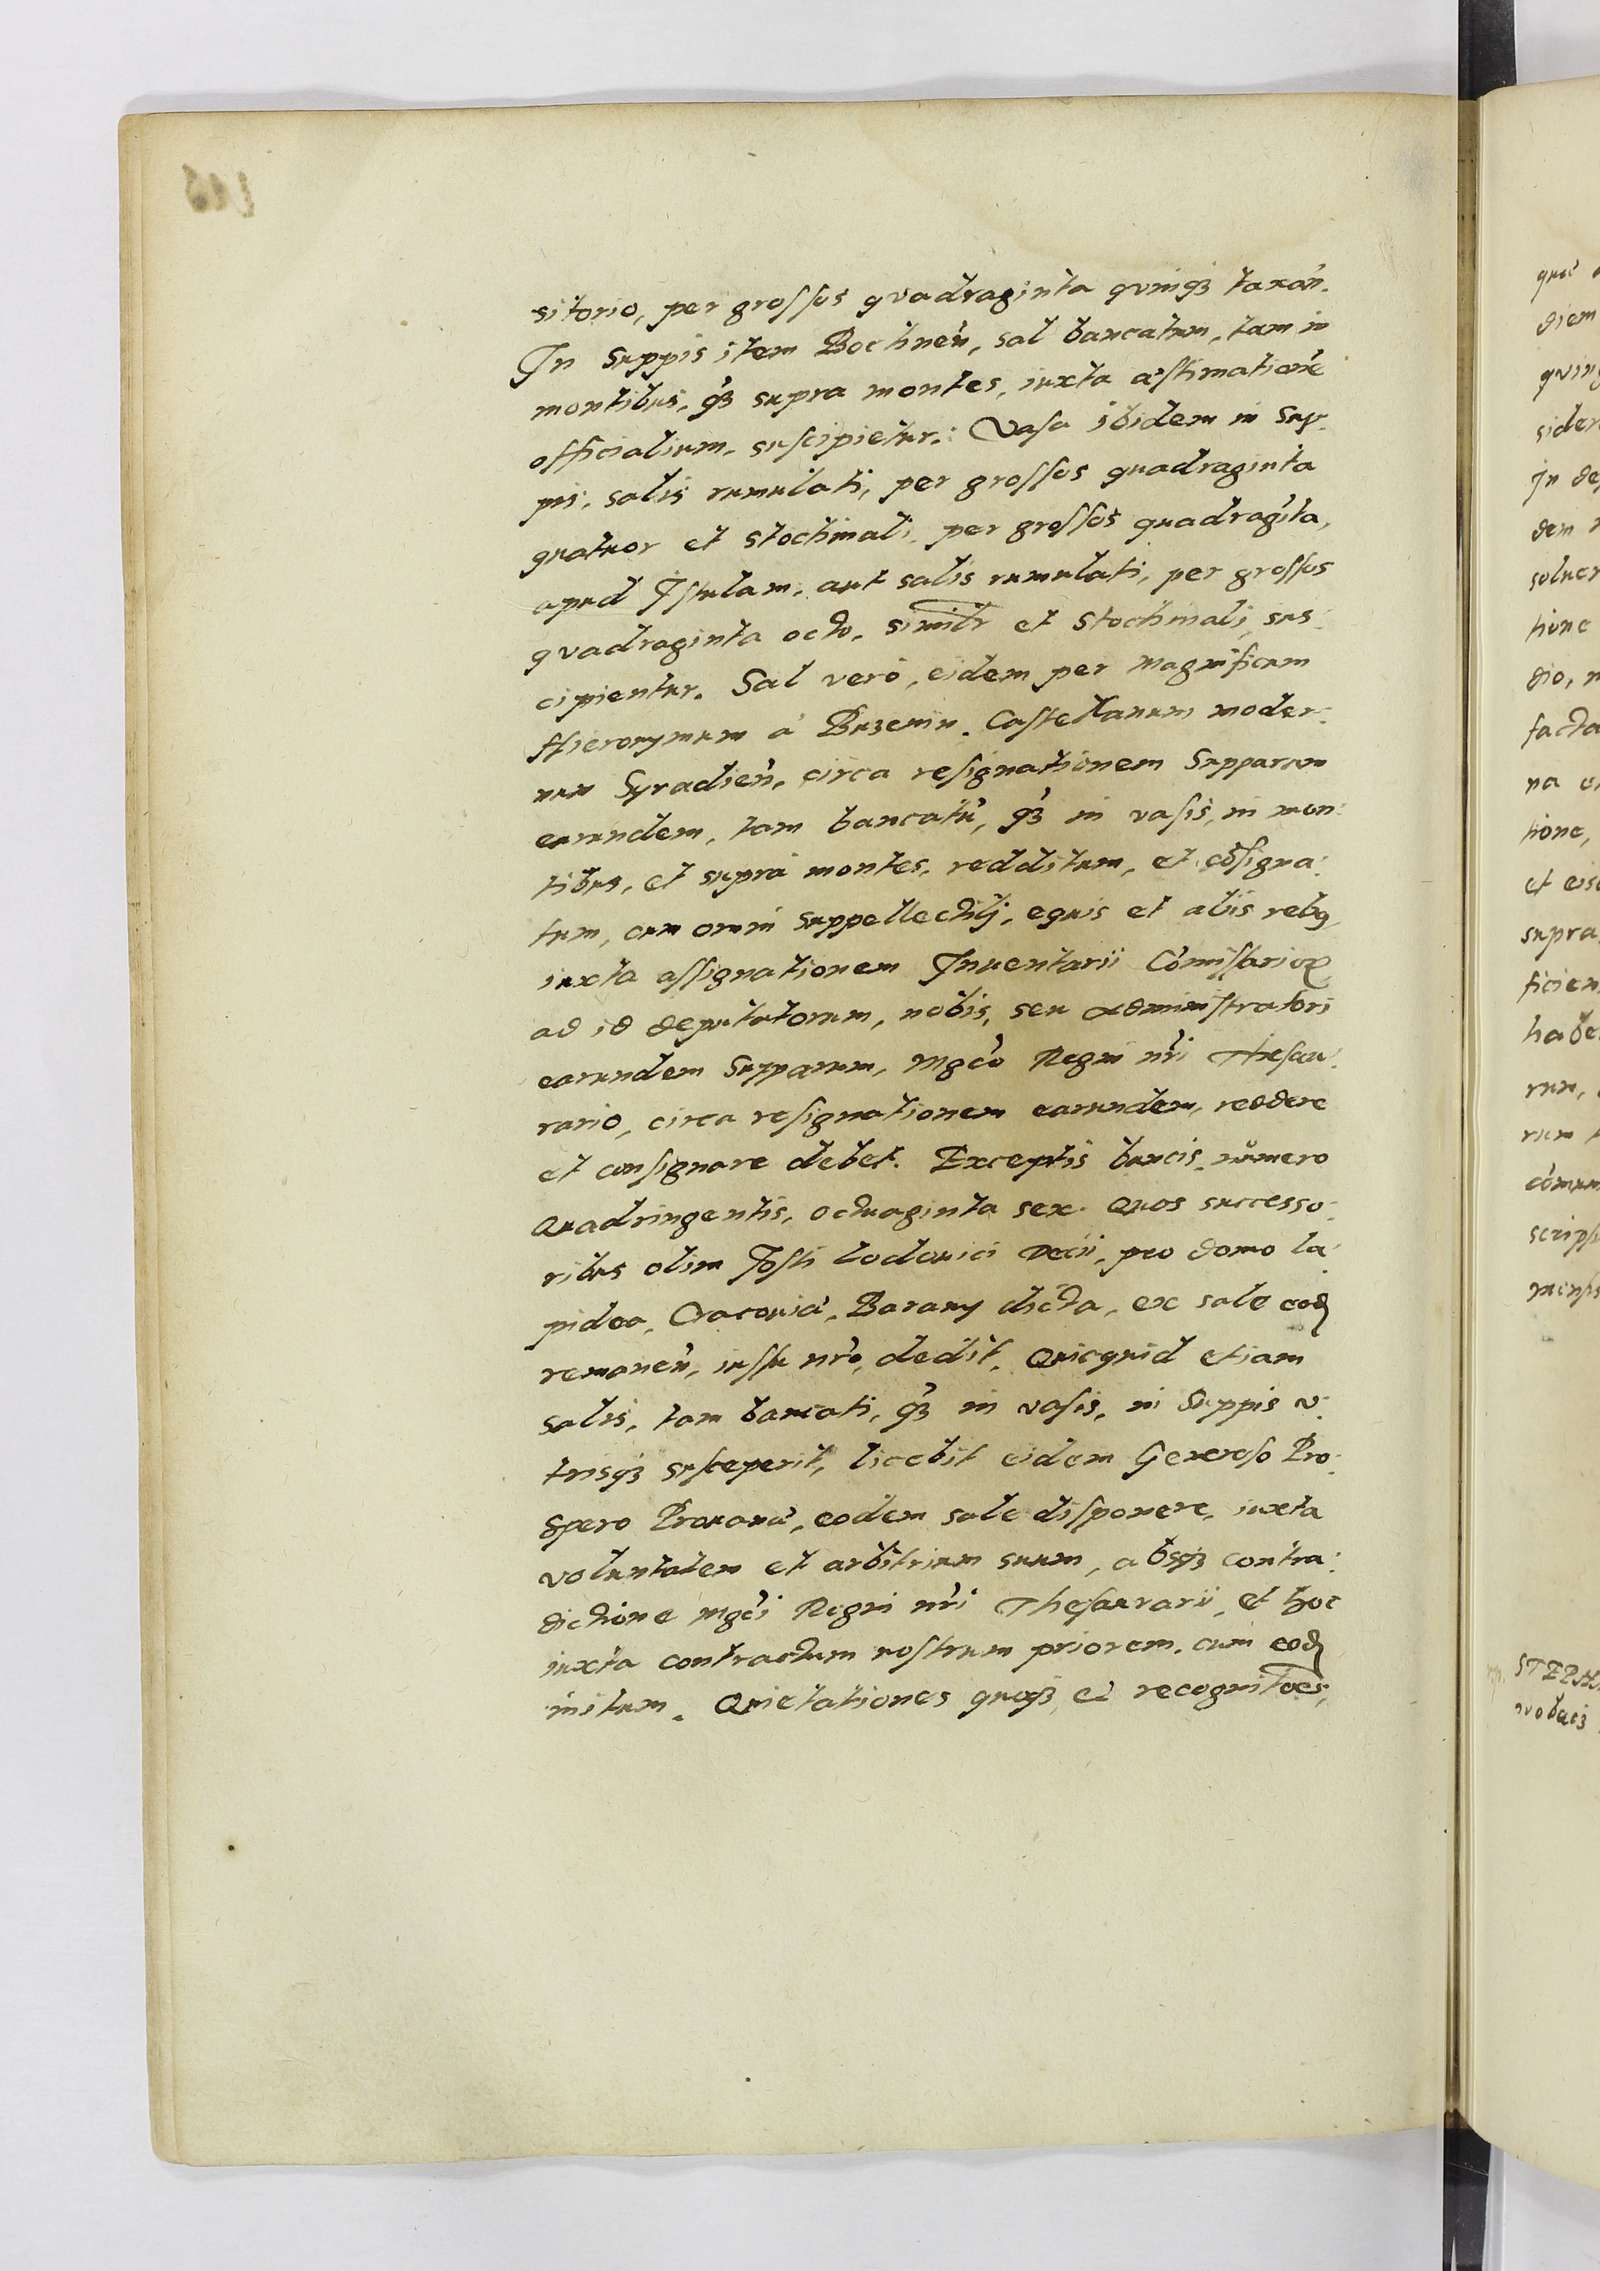 sitorio, per grossos quadraginta quinqȝ taxan̄.
In Suppis item Bochnen̄, sal bancatum, tam in
montibus, q̃ȝ supra montes, iuxta æstimationē
officialium, suscipietur: Vasa ibidem in Sup:
pis, salis rumulati, per grossos quadraginta
quatuor et stochmali, per grossos quadragīta,
apud Istulam, aut salis rumulati, per grossos
quadraginta octo, similr̃ et stochmali, sus:
cipientur. Sal verò, eidem per Magnificum
Hieronymum à Buzenin, Castellanum moder:
num Syradien̄, circa resignationem Supparum
earundem, tam bancatū, q̃ȝ in vasis, in mon:
tibus, et supra montes, redditum, et cōsigna:
tum, cum omni suppellectilj, equis et aliis rebꝫ
iuxta assignationem Inuentarii Cōmissarioꝝ
ad id deputatorum, nobis, seu administratori
earundem Supparum, Mgc̄o Regni nr̄i Thesau:
rario, circa resignationem earundem, reddere
et consignare debet. Exceptis bancis, numero
Quadringentis, octuaginta sex. Quos successo:
ribus olim Josti Lodouici Decii, pro domo la:
pidea, Cracouiæ, Barany dicta, ex sale eod̃
remanen̄, iussu nr̄o, dedit. Quicquid etiam
salis, tam bancati, q̃ȝ in vasis, in Suppis v:
trisqȝ susceperit, licebit eidem Generoso Pro:
spero Prouanæ, eodem sale disponere, iuxta
voluntatem et arbitrium suum, absqȝ contra:
dictione Mgc̄i Regni nr̄i Thesaurarii, et hoc
iuxta contractum nostrum priorem, cum eod̃
initum. Quietationes quoqȝ et recognitōes,